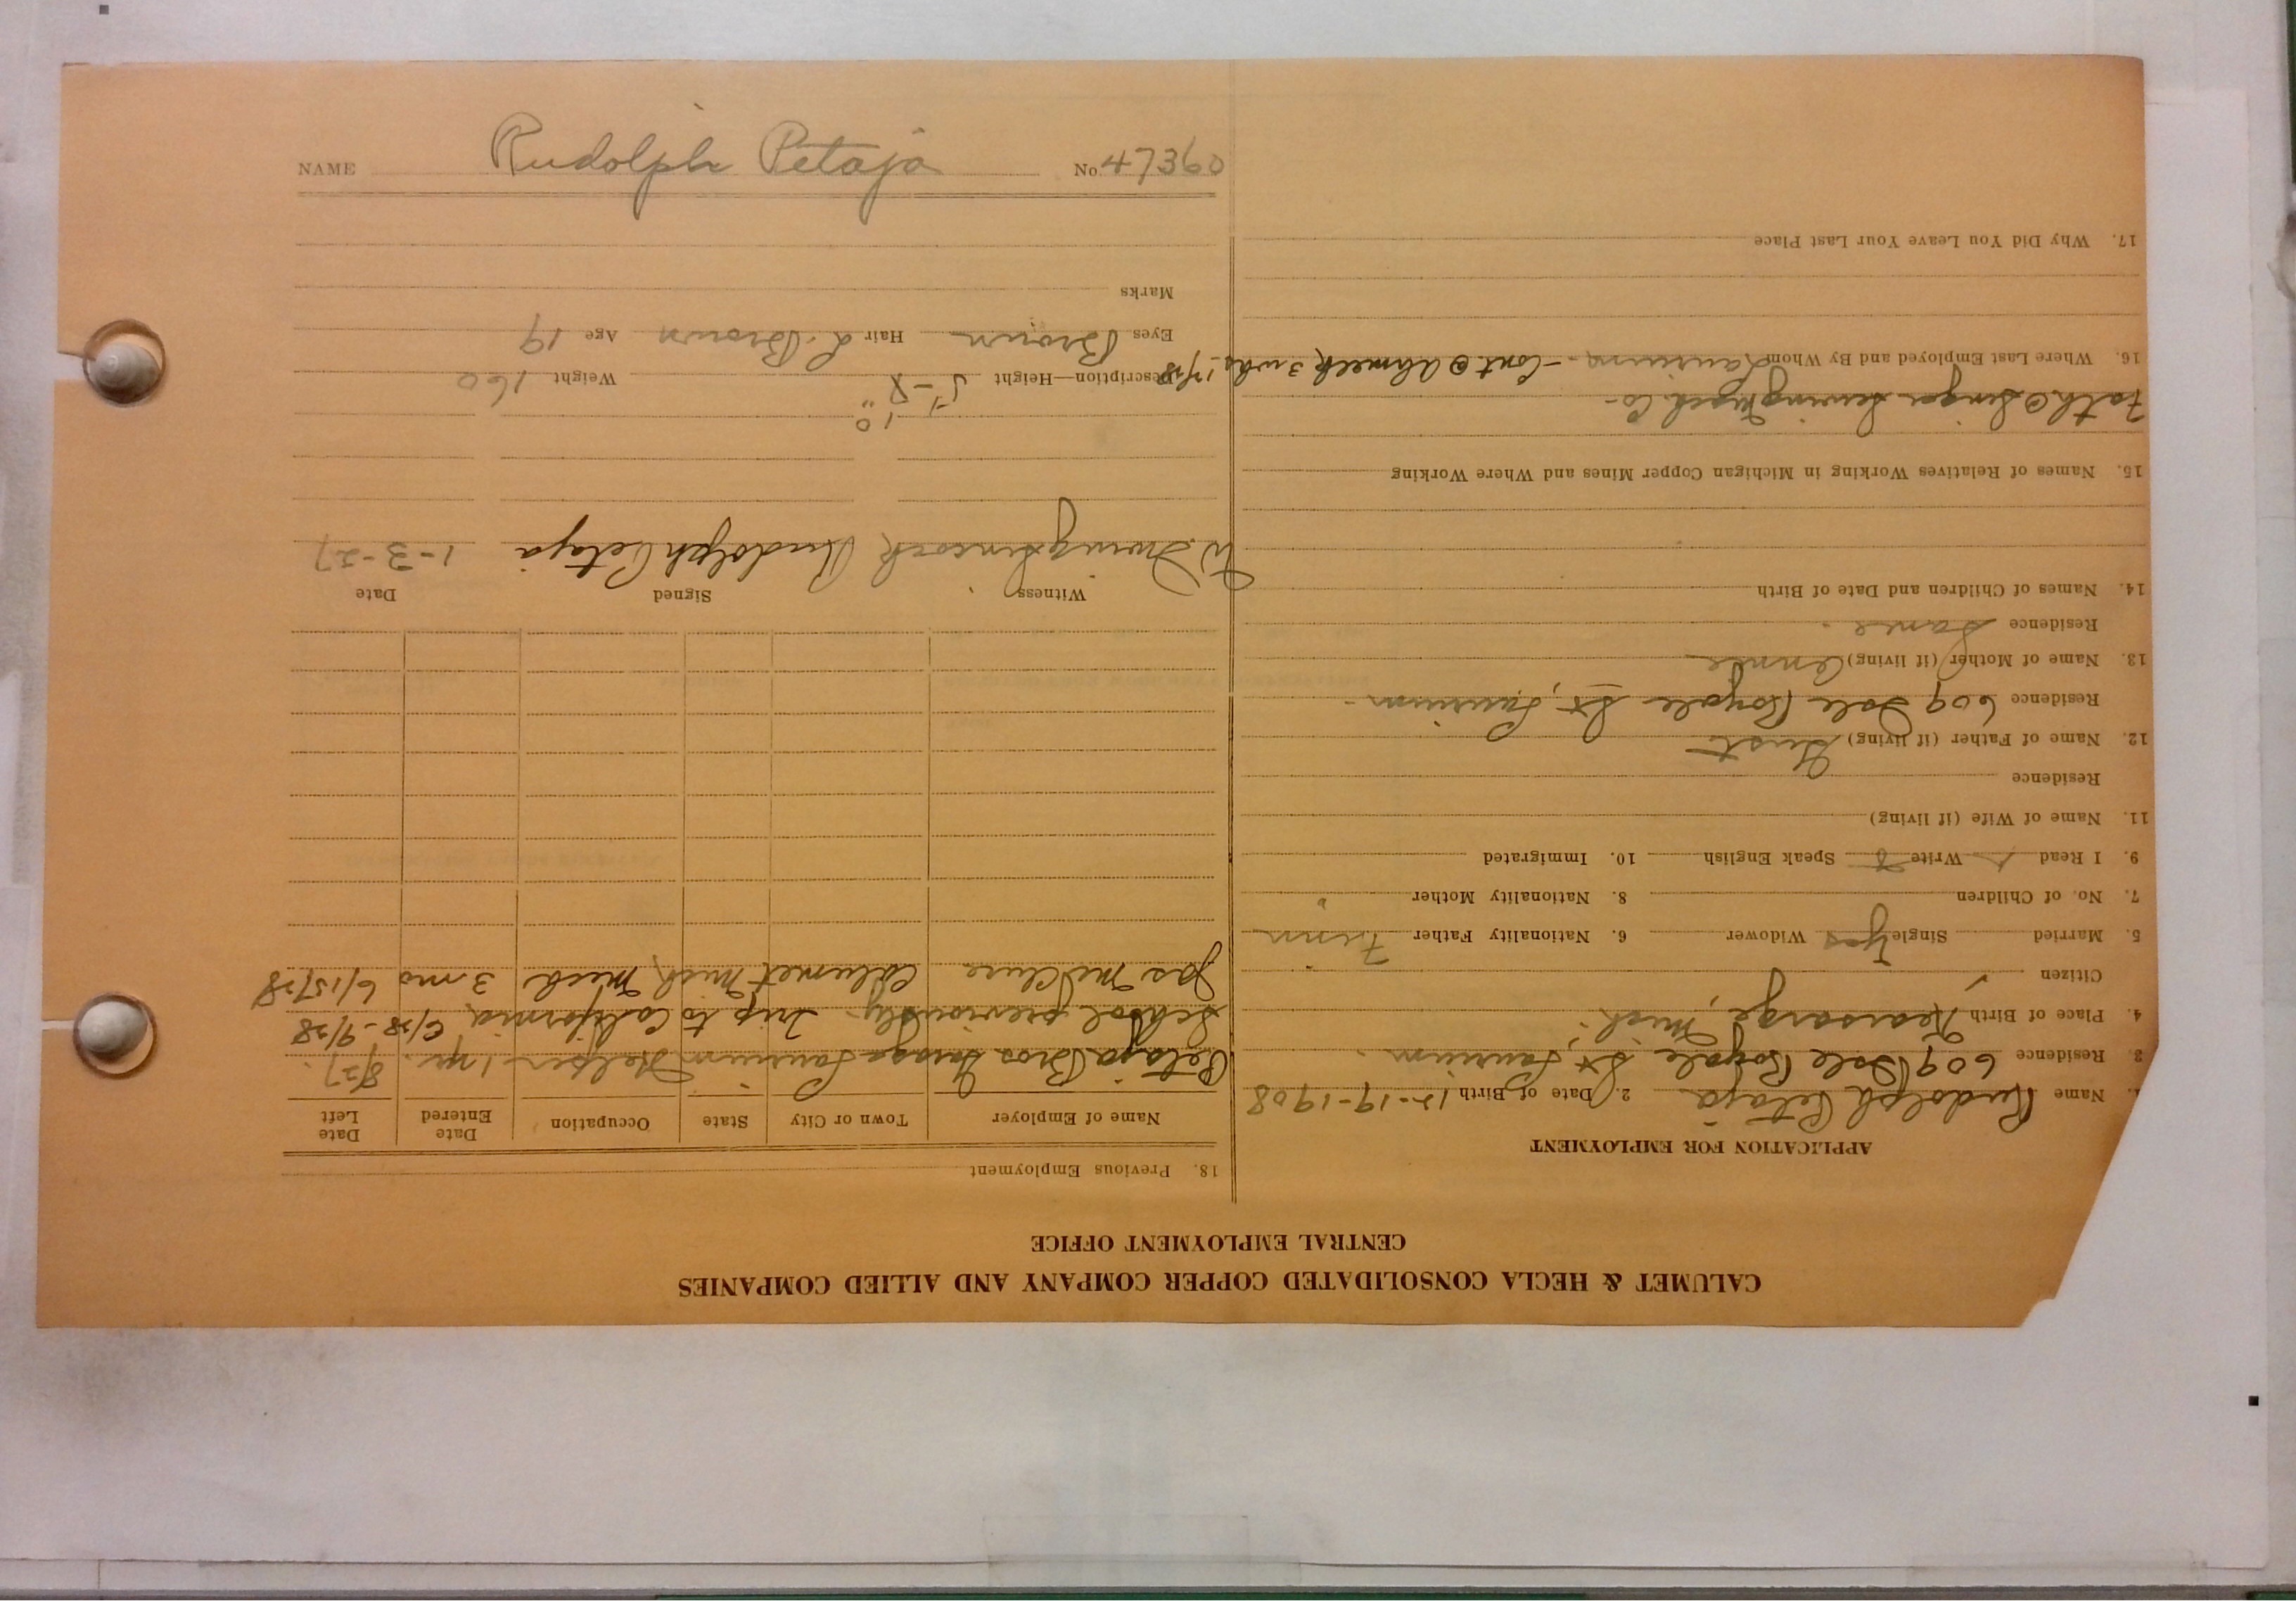 NAME Rudolph Petaja No. 47360
CALUMET & HECLA CONSOLIDATED COPPER COMPANY AND ALLIED COMPANIES
CENTRAL EMPLOYMENT OFFICE
APPLICATION FOR EMPLOYMENT
1. Name Rudolph Petaja 2. Date of Birth 12-19-1908
3. Residence 609 Isle Royale St, Laurium.
4. Place of Birth Kearsarge, Mich.
Citizen
5. Married Single Yes Widower 6. Nationality Father Finn
7. No. of Children 8. Nationality Mother "
9. I Read Write Speak English 10. Immigrated
11. Name of Wife (if living)
Residence
12. Name of Father (if living) Gust
Residence 609 Isle Royale St, Laurium
13. Name of Mother (if living) Annie
Residence Same.
14. Names of Children and Date of Birth
15. Names of Relatives Working in Michigan Copper Mines and Where Working
Fath @ Singer Sewing Mach. Co-
16. Where Last Employed and By Whom Laurium - Cont @ Ahmeek 3 wks
17. Why Did You Leave Your Last Place
18. Previous Employment
Name of Employer Town or City State Occupation Date Entered Date Left
Petaja Bros Garage Laurium Helper 1 yr. 8/27.
School previously. Trip to California, 6/28-9/28
Jas McClure Calumet Mich Mech 3 mo 6/15/28
Witness Signed Date
W. Irving Rudolph Petaja 1-3-27
Description—Height 5'-8" Weight 160
Eyes Brown Hair L. Brown Age 19
Marks